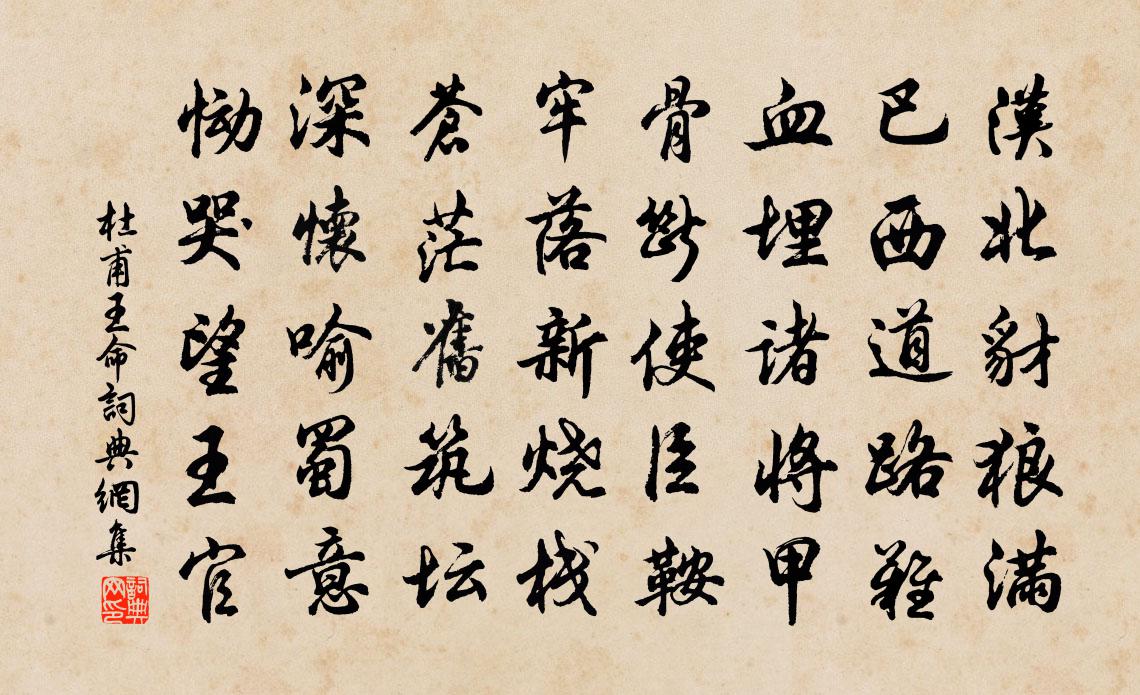 漢北豺狼滿
巴西道路難
血埋诸将甲
骨斷使臣鞍
牢落新烧栈
蒼茫舊筑坛
深懷喻蜀意
慟哭望王官
杜甫王命詞典網集
詞典网印